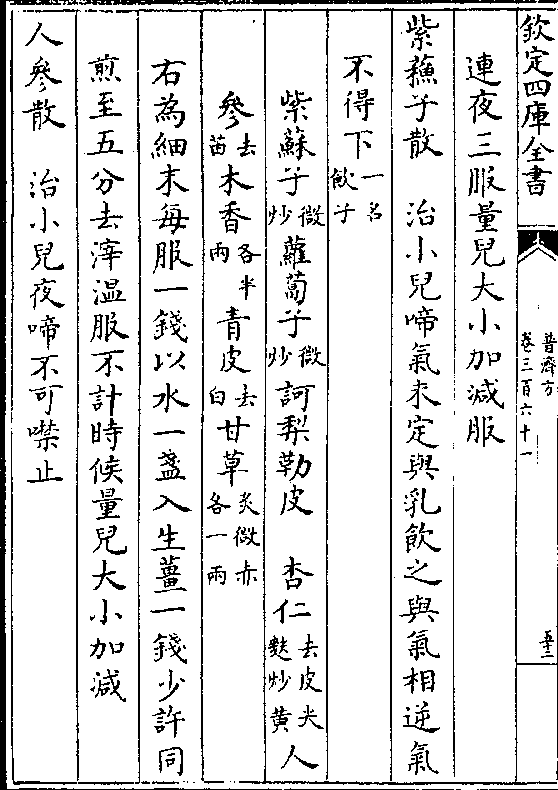 欽定四庫全書
普濟方
卷三百六十一
五十二
連夜三服量兒大小加減服
紫蘓子散　治小兒啼氣未定與乳飲之與氣相逆氣
不得下一名飲子
紫蘇子微炒蘿蔔子微炒訶梨勒皮　杏仁去皮尖麩炒黄人
參去苗木香各半兩青皮去白甘草炙微赤各一兩
右為細末每服一錢以水一盞入生薑一錢少許同
煎至五分去滓温服不計時候量兒大小加減
人參散　治小兒夜啼不可噤止